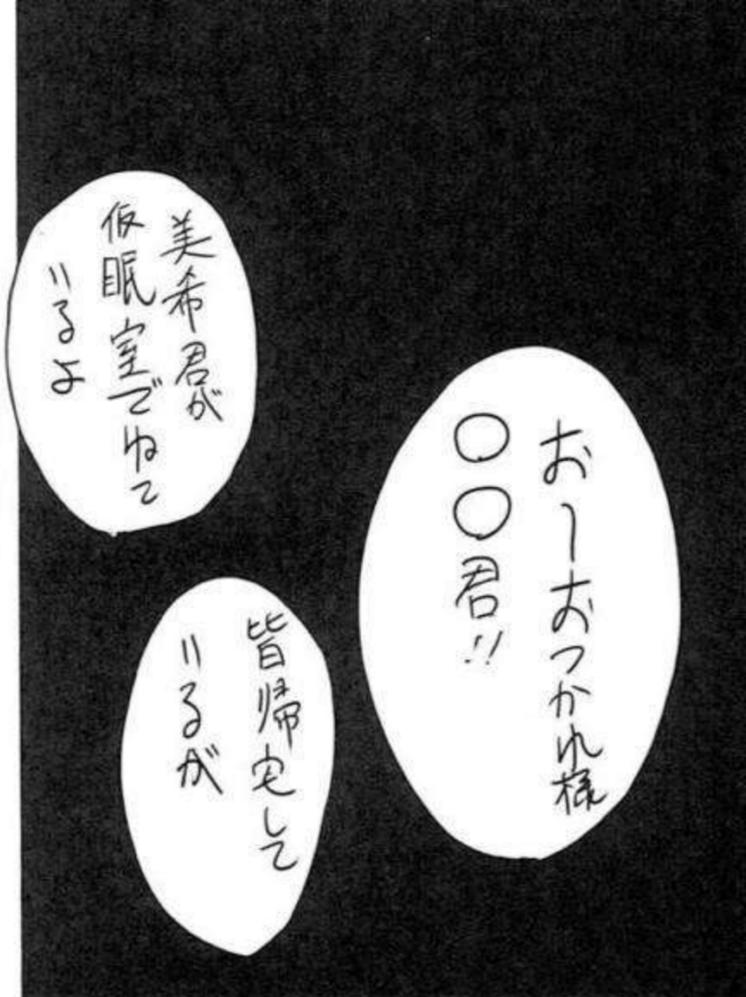 おーおつかれ様
〇〇君!!
皆帰宅して
いるが
美希君が
仮眠室でねて
いるよ